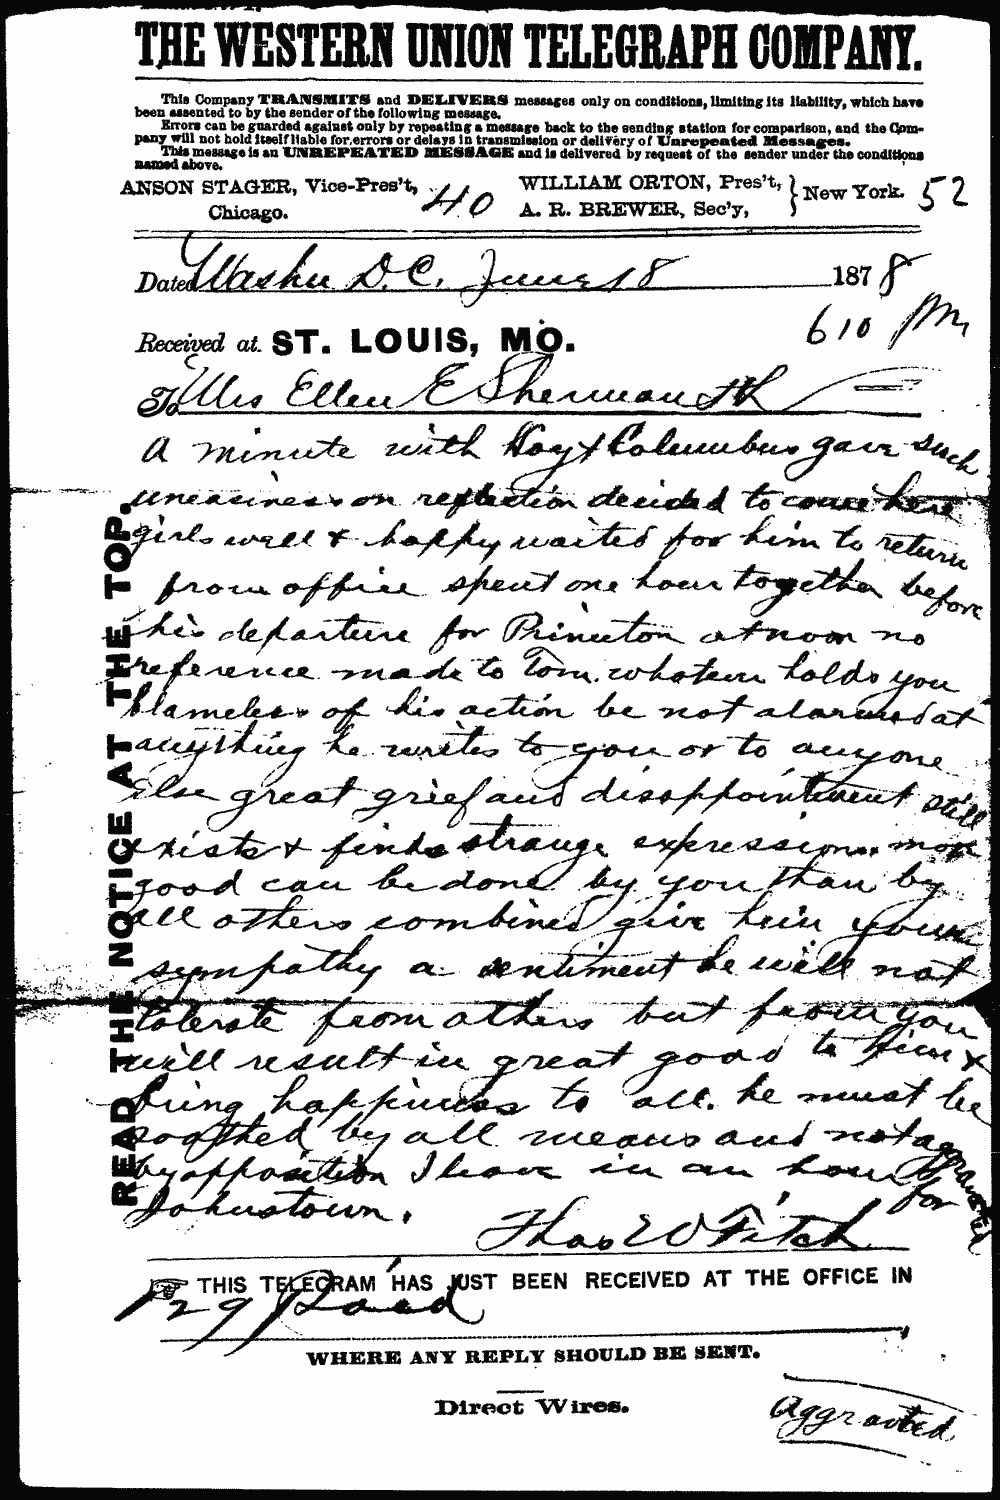 THE WESTERN UNION TELEGRAPH COMPANY.
This Company TRANSMITS and DELIVERS messages only on conditions, limiting its liability, which have
been assented to by the sender of the following message.
Errors can be guarded against only by repeating a message back to the sending station for comparison, and the Com-
pany will not hold itself liable for errors or delays in transmission or delivery of Unrepeated Messages.
This message is an UNREPEATED MESSAGE and is delivered by request of the sender under the conditions
named above.
ANSON STAGER, Vice-Pres't, Chicago.
40
WILLIAM ORTON, Pres't,
A. R. BREWER, Sec'y,
New York.
52
Dated Washn D.C. June 18 1878
610 Pm
Received at ST. LOUIS, MO.
To Mrs Ellen E Sherman
A minute with Hoyt Columbus gave such
uneasiness on reflection decided to come here
girls well & happy waited for him to return
from office spent one hour together before
his departure for Princeton at noon no
reference made to Tom. whatever holds you
blameless of his action be not alarmed at
anything he writes to you or to anyone
else great grief and disappointment still
exists & finds strange expressions. more
good can be done by you than by
all others combined give him your
sympathy a sentiment he will not
tolerate from others but from you
will result in great good to him &
bring happiness to all. he must be
soothed by all means and not aggravated
by opposition I leave in an hour for
Johnstown.
Thos W Fitch
READ THE NOTICE AT THE TOP.
THIS TELEGRAM HAS JUST BEEN RECEIVED AT THE OFFICE IN
129 Paid
WHERE ANY REPLY SHOULD BE SENT.
Direct Wires.
Aggravted